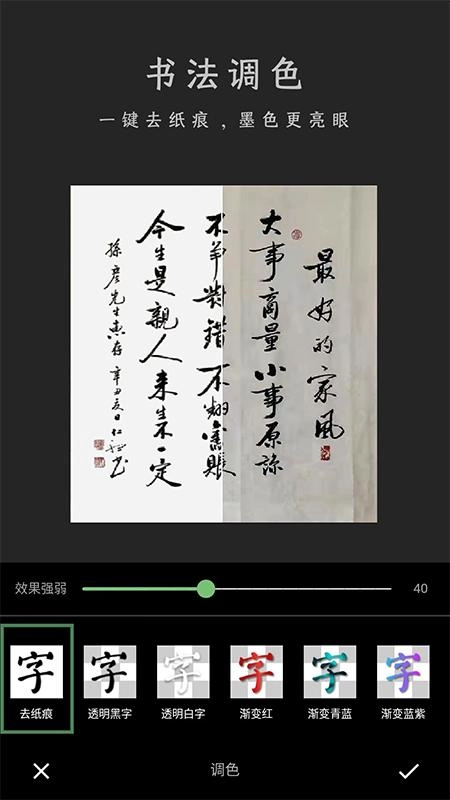 书法调色
一键去纸痕，墨色更亮眼
最好的家风
大事商量小事原諒
不争對錯不翻舊賬
今生是親人来生不一定
孫彦先生惠存辛丑夏日
效果强弱
40
字
字
字
字
字
字
去纸痕
透明黑字
透明白字
渐变红
渐变青蓝
渐变蓝紫
调色